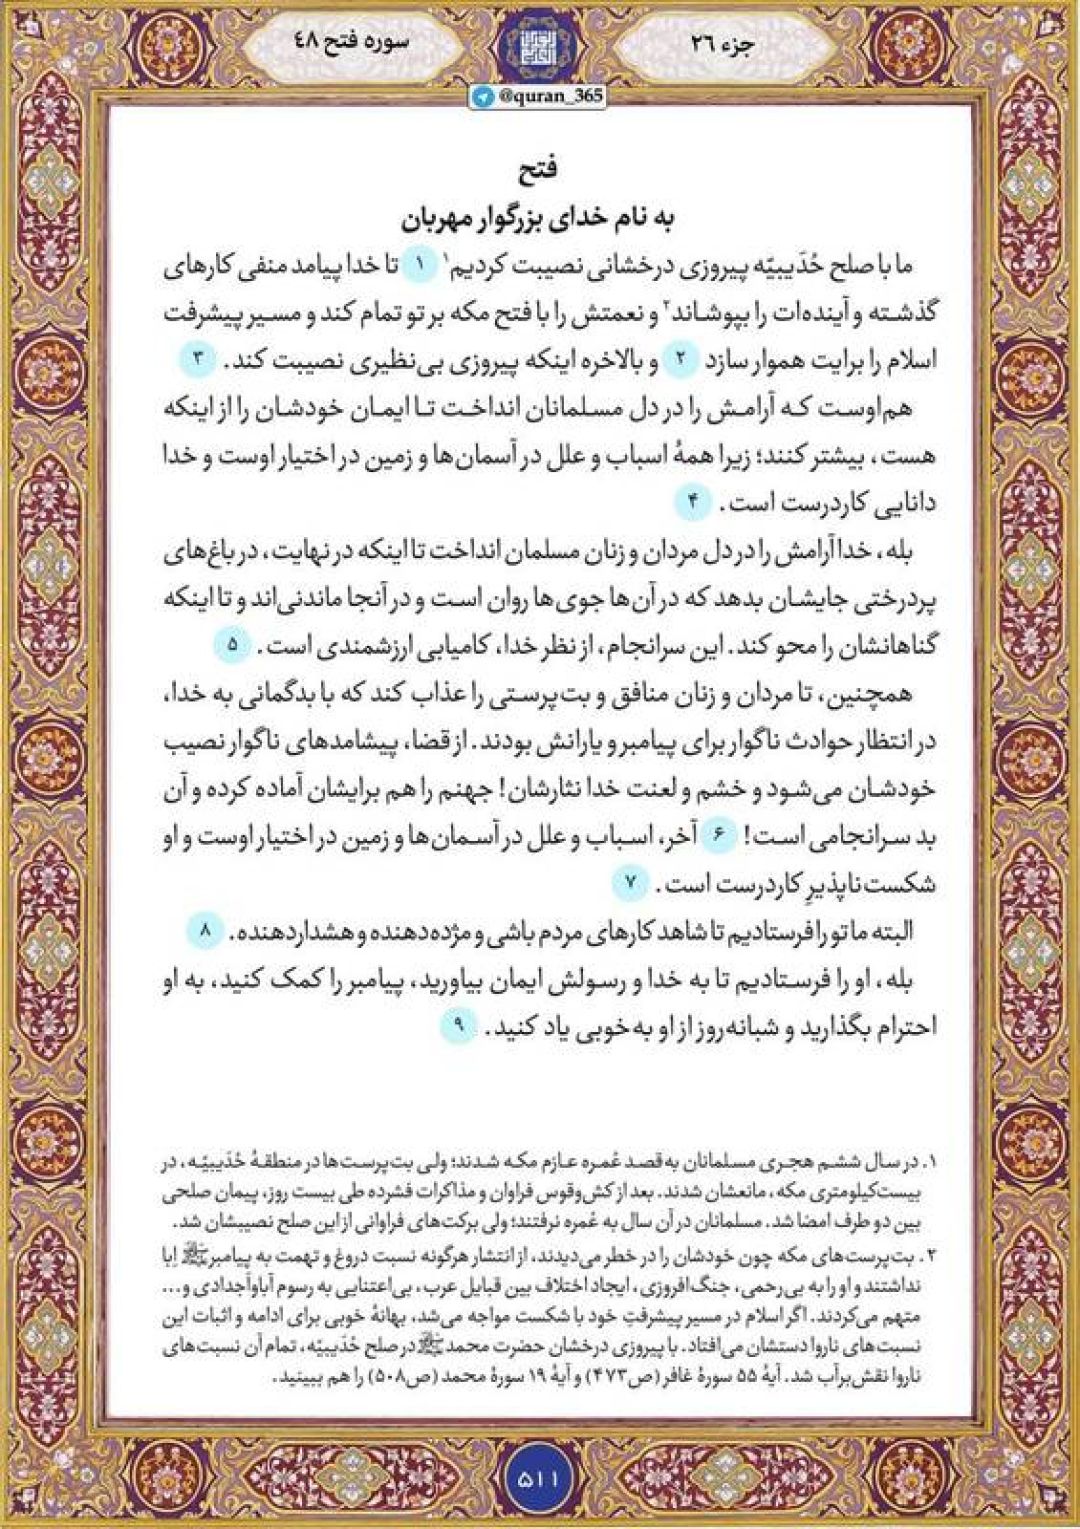 جزء ۲۶
سوره فتح ۴۸
@quran_365
فتح
به نام خدای بزرگوار مهربان
ما با صلح حُدَیبیّه پیروزی درخشانی نصیبت کردیم۱ ۱ تا خدا پیامد منفی کارهای
گذشته و آینده‌ات را بپوشاند۲ و نعمتش را با فتح مکه بر تو تمام کند و مسیر پیشرفت
اسلام را برایت هموار سازد ۲ و بالاخره اینکه پیروزی بی‌نظیری نصیبت کند. ۳
هم‌اوست که آرامش را در دل مسلمانان انداخت تا ایمان خودشان را از اینکه
هست، بیشتر کنند؛ زیرا همهٔ اسباب و علل در آسمان‌ها و زمین در اختیار اوست و خدا
دانایی کاردرست است. ۴
بله، خدا آرامش را در دل مردان و زنان مسلمان انداخت تا اینکه در نهایت، در باغ‌های
پردرختی جایشان بدهد که در آن‌ها جوی‌ها روان است و در آنجا ماندنی‌اند و تا اینکه
گناهانشان را محو کند. این سرانجام، از نظر خدا، کامیابی ارزشمندی است. ۵
همچنین، تا مردان و زنان منافق و بت‌پرستی را عذاب کند که با بدگمانی به خدا،
در انتظار حوادث ناگوار برای پیامبر و یارانش بودند. از قضا، پیشامدهای ناگوار نصیب
خودشان می‌شود و خشم و لعنت خدا نثارشان! جهنم را هم برایشان آماده کرده و آن
بد سرانجامی است! ۶ آخر، اسباب و علل در آسمان‌ها و زمین در اختیار اوست و او
شکست‌ناپذیرِ کاردرست است. ۷
البته ما تو را فرستادیم تا شاهد کارهای مردم باشی و مژده‌دهنده و هشداردهنده. ۸
بله، او را فرستادیم تا به خدا و رسولش ایمان بیاورید، پیامبر را کمک کنید، به او
احترام بگذارید و شبانه‌روز از او به خوبی یاد کنید. ۹
۱. در سال ششم هجری مسلمانان به‌قصد عُمره عازم مکه شدند؛ ولی بت‌پرست‌ها در منطقهٔ حُدَیبیّه، در
بیست‌کیلومتری مکه، مانعشان شدند. بعد از کش‌وقوس فراوان و مذاکرات فشرده طی بیست روز، پیمان صلحی
بین دو طرف امضا شد. مسلمانان در آن سال به عُمره نرفتند؛ ولی برکت‌های فراوانی از این صلح نصیبشان شد.
۲. بت‌پرست‌های مکه چون خودشان را در خطر می‌دیدند، از انتشار هرگونه نسبت دروغ و تهمت به پیامبرﷺ اِبا
نداشتند و او را به بی‌رحمی، جنگ‌افروزی، ایجاد اختلاف بین قبایل عرب، بی‌اعتنایی به رسوم آباواَجدادی و...
متهم می‌کردند. اگر اسلام در مسیر پیشرفتِ خود با شکست مواجه می‌شد، بهانهٔ خوبی برای ادامه و اثبات این
نسبت‌های ناروا دستشان می‌افتاد. با پیروزی درخشان حضرت محمدﷺ در صلح حُدَیبیّه، تمام آن نسبت‌های
ناروا نقش‌برآب شد. آیهٔ ۵۵ سورهٔ غافر (ص۴۷۳) و آیهٔ ۱۹ سورهٔ محمد (ص۵۰۸) را هم ببینید.
۵۱۱